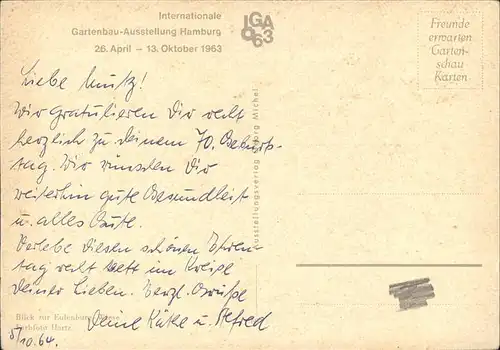 Internationale
Gartenbau-Ausstellung Hamburg
26. April – 13. Oktober 1963
IGA 63
Freunde
erwarten
Garten-
schau
Karten
Liebe
Wir gratulieren Dir recht
herzlich zu deinem 70. Geburts-
tag. Wir wünschen Dir
weiterhin gute Gesundheit
u. alles Gute.
Verlebe diesen schönen Ehren-
tag recht nett im Kreise
deiner Lieben. Herzl. Grüße
Deine Käthe u. Alfred
Ausstellungsverlag Georg Michel
Blick zur Eulenburg
Farbfoto Hartz
5/10.64.